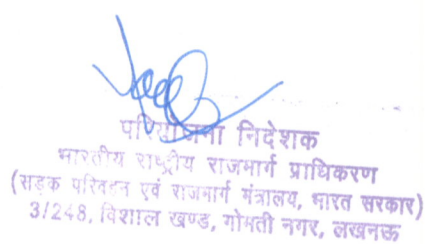 परियोजना निदेशक
भारतीय राष्ट्रीय राजमार्ग प्राधिकरण
(सड़क परिवहन एवं राजमार्ग मंत्रालय, भारत सरकार)
3/248, विशाल खण्ड, गोमती नगर, लखनऊ